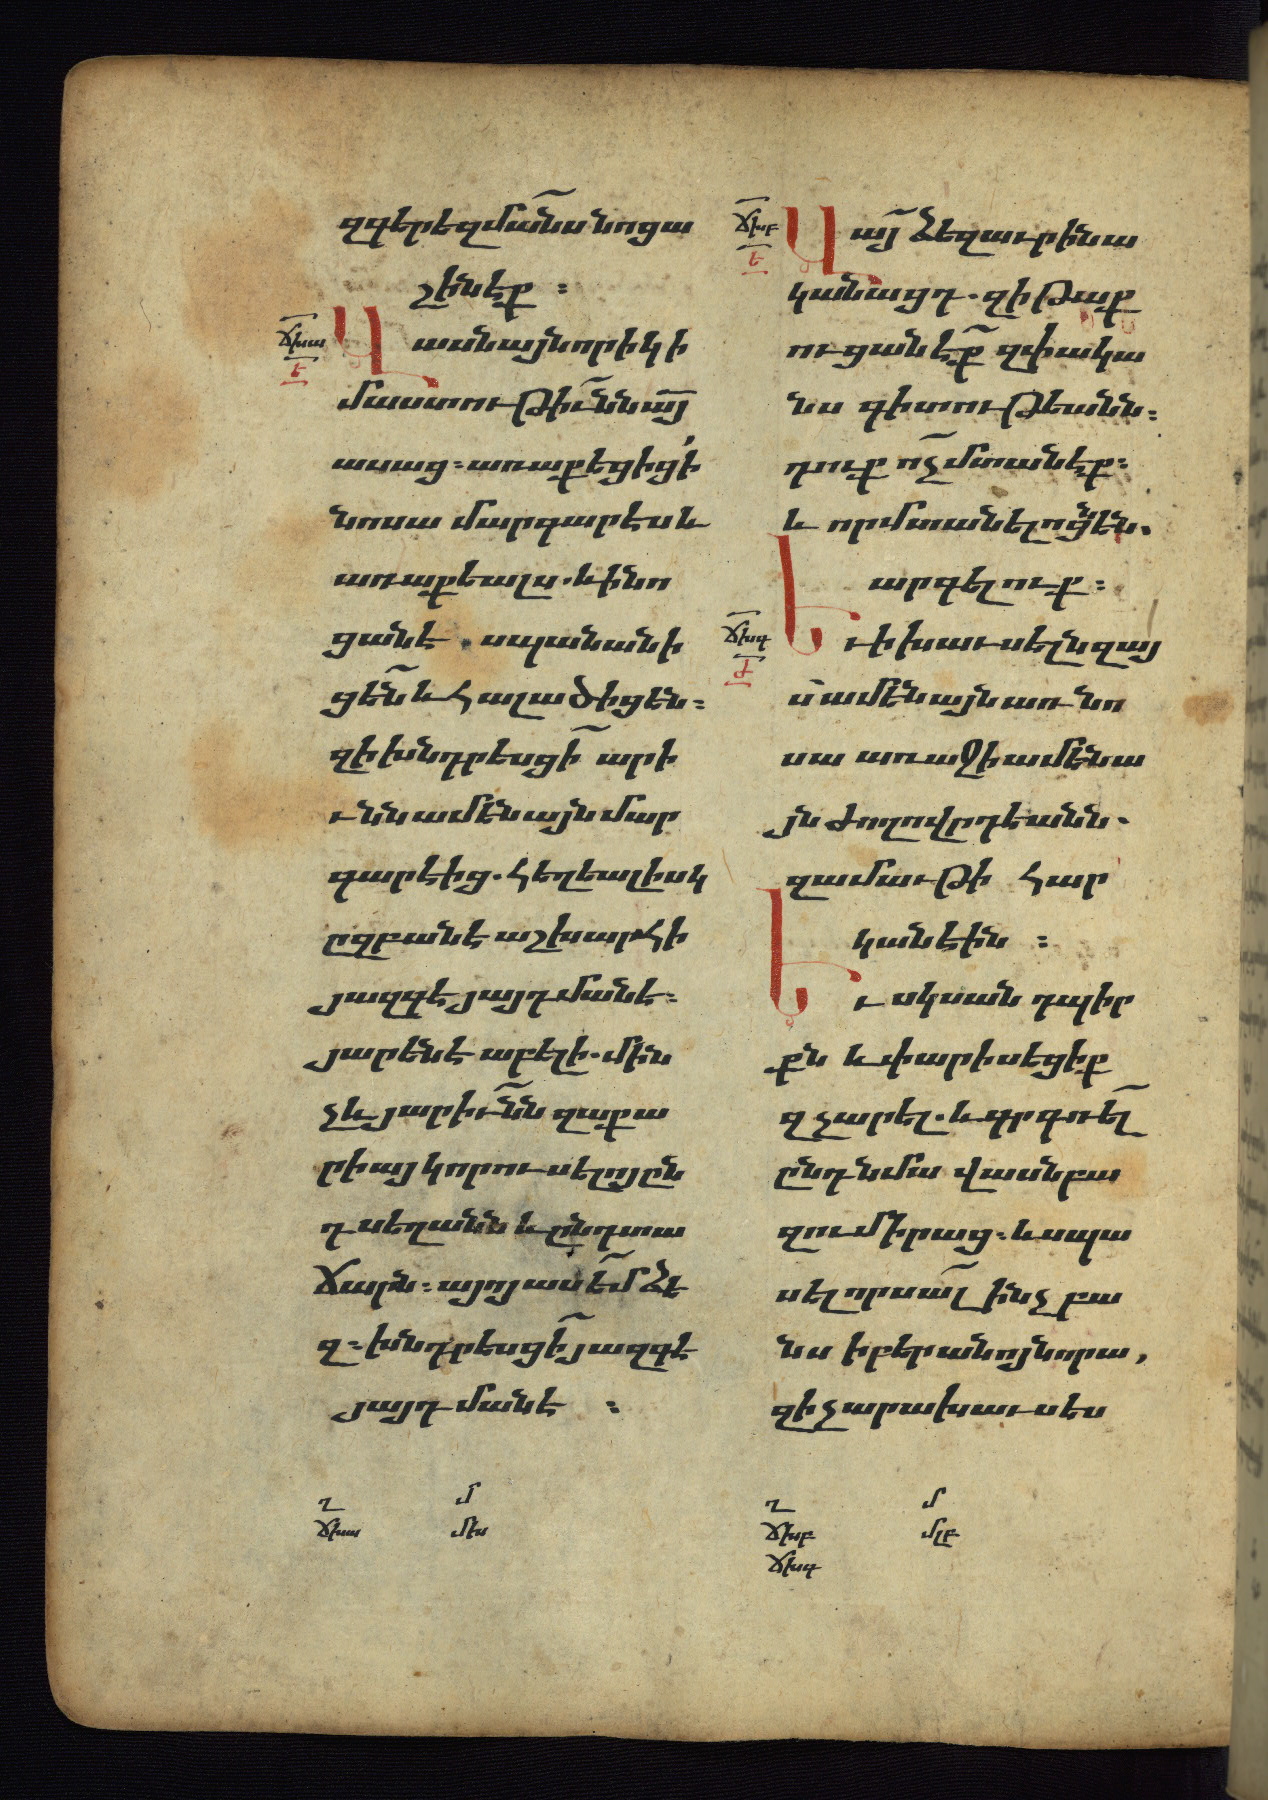 զգերեզմա̃նս նոցա
շինէք ։
ճխա
ե
Վասն այնորիկ ի
մաստութի̃ւնն ա̃յ
ասաց ։ առաքեցից ի
նոսա մարգարէս և
առաքեալս . և ի նո
ցանէ . սպանանի
ցե̃ն և հալածիցեն ։
զի խնդրեսցի̃ արի
ւնն ամե̃նայն մար
գարէից . հեղեալ ի սկ
ըզբանէ աշխարհի
յազգէ յայդմանէ ։
յարենէ աբելի . մին
չև յարի̃ւնն զաքա
րիայ կորուսելոյ ըն
դ սեղանն և ընդ տա
ճարն ։ այո ասե̃մ ձե
զ ։ խնդրեսցի̃ յազգէ
յայդմանէ ։
ղ մ
ճխա մխ
ճխբ
ե
Վա̃յ ձեզ աւրինա
կանացդ . զի թաք
ուցանէ̃ք զփակա
նս գիտութեանն ։
դուք ո̃չ մտանէք ։
և որ մտանելոցն են .
արգելուք ։
ճխգ
ժ
Եւ ի խաւսելն զայ
ս ամե̃նայն առ նո
սա առաջի ամե̃նա
յն ժողովըրդեանն .
զամաւթի հար
կանէին ։
Եւ սկսան դպիր
քն և փարիսեցիք
զչարել . և գրգուե̃լ
ընդ նմա վասն բա
զում իրաց . և սպա
սել որսա̃լ ինչ բա
նս ի բերանոյ նորա ,
զի չարախաւսես
ղ մ
ճխբ մլբ
ճխգ